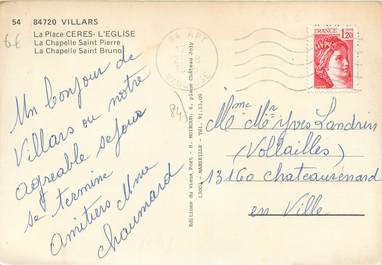 54 84720 VILLARS
La Place CERES-L'EGLISE
La Chapelle Saint Pierre
La Chapelle Saint Bruno
6€
84 APT
84)
FRANCE
1,20
Un bonjour de
Villars ou notre
agreable sejour
se termine
amitiers Mme
chaumard
Mme Mr Yves Landrin
(Vollailles)
13160 Chateaurenard
en Ville
Editions du Vieux Port - H. 6, place Château Joly
13002 - MARSEILLE - Tél. 91.13.09